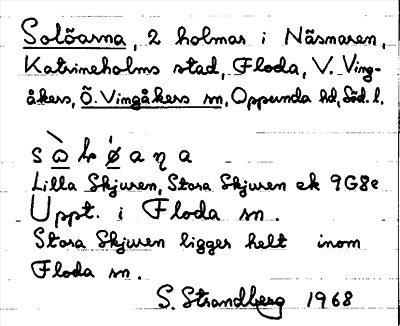 Solöarna, 2 holmar i Näsnaren,
Katrineholms stad, Floda, V. Ving-
åkers, Ö. Vingåkers sn, Oppunda hd, Söd. l.
Lilla Skjuren, Stora Skjuren ek 9G8e
Uppt. i Floda sn.
Stora Skjuren ligger helt inom
Floda sn.
S. Strandberg 1968